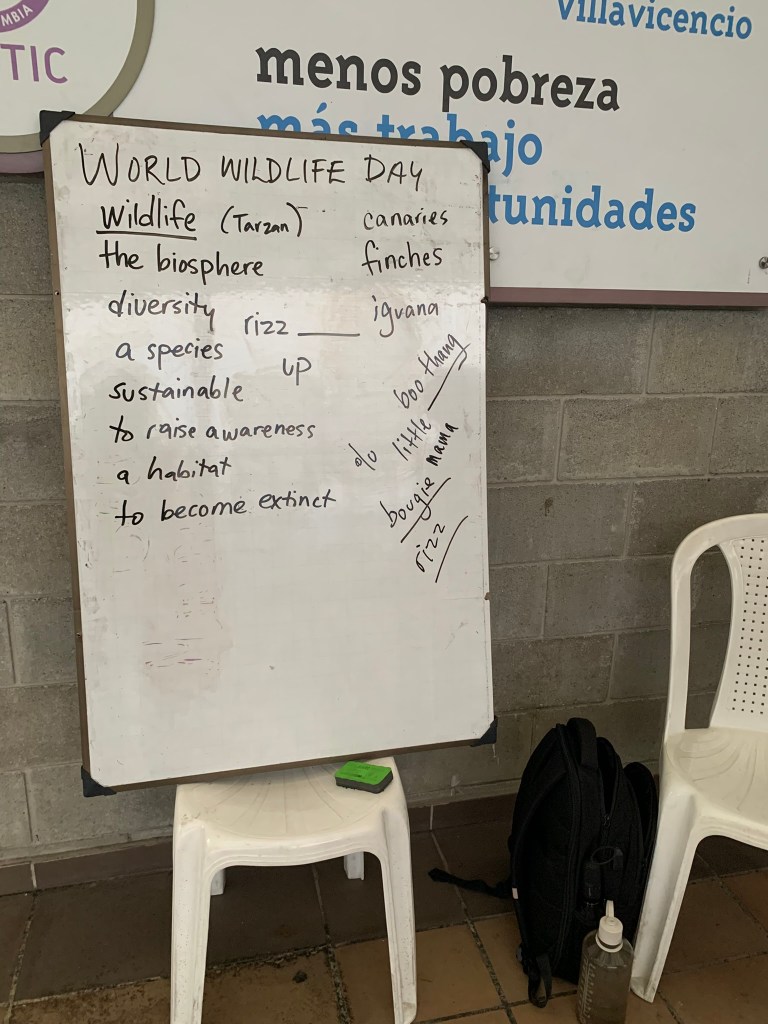 MBIA
TIC
villavicencio
menos pobreza
más trabajo
tunidades
WORLD WILDLIFE DAY
wildlife (Tarzan)
the biosphere
diversity
a species
sustainable
to raise awareness
a habitat
to become extinct
canaries
finches
iguana
rizz ____
up
boo thang
little
mama
bougie
rizz